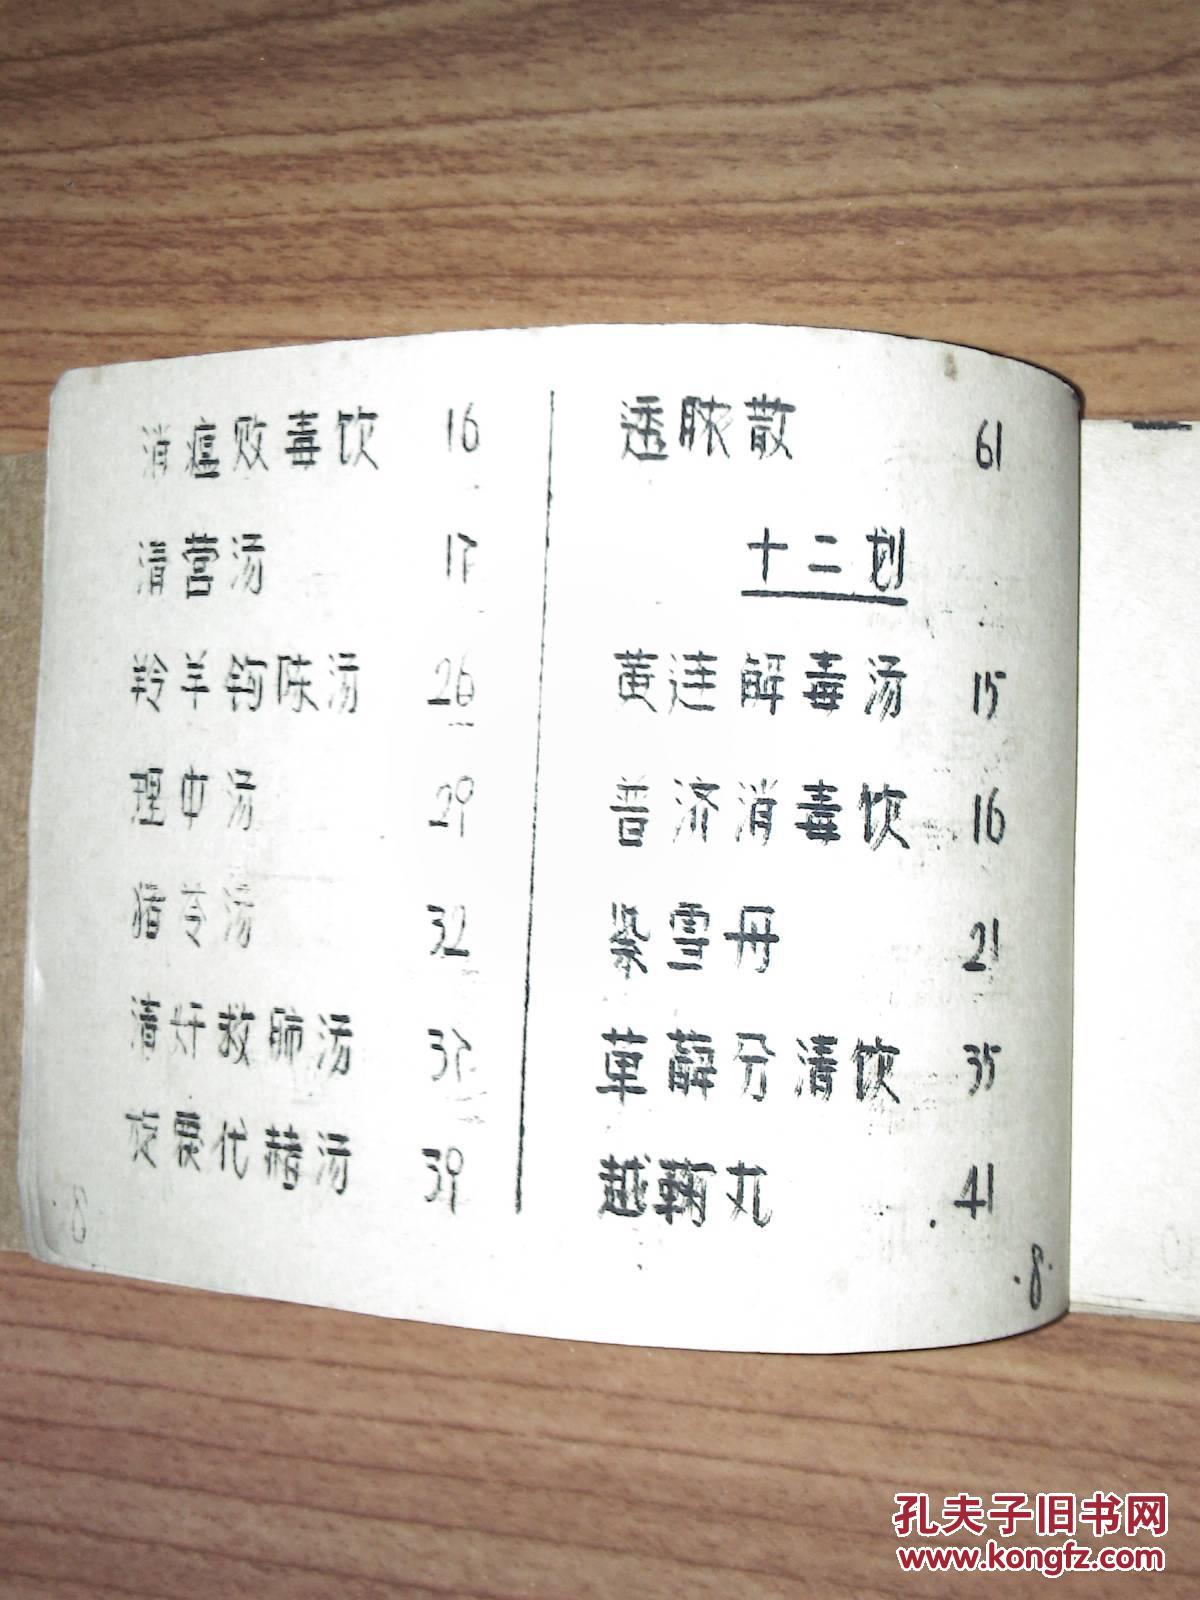 消瘟败毒饮 16
清营汤 17
羚羊钩陈汤 26
理中汤 29
猪苓汤 32
清奸救肺汤 37
旋覆代赭汤 39
8
透脓散 61
十二划
黄连解毒汤 15
普济消毒饮 16
紫雪丹 21
萆薢分清饮 35
越鞠丸 41
·8·
孔夫子旧书网
www.kongfz.com